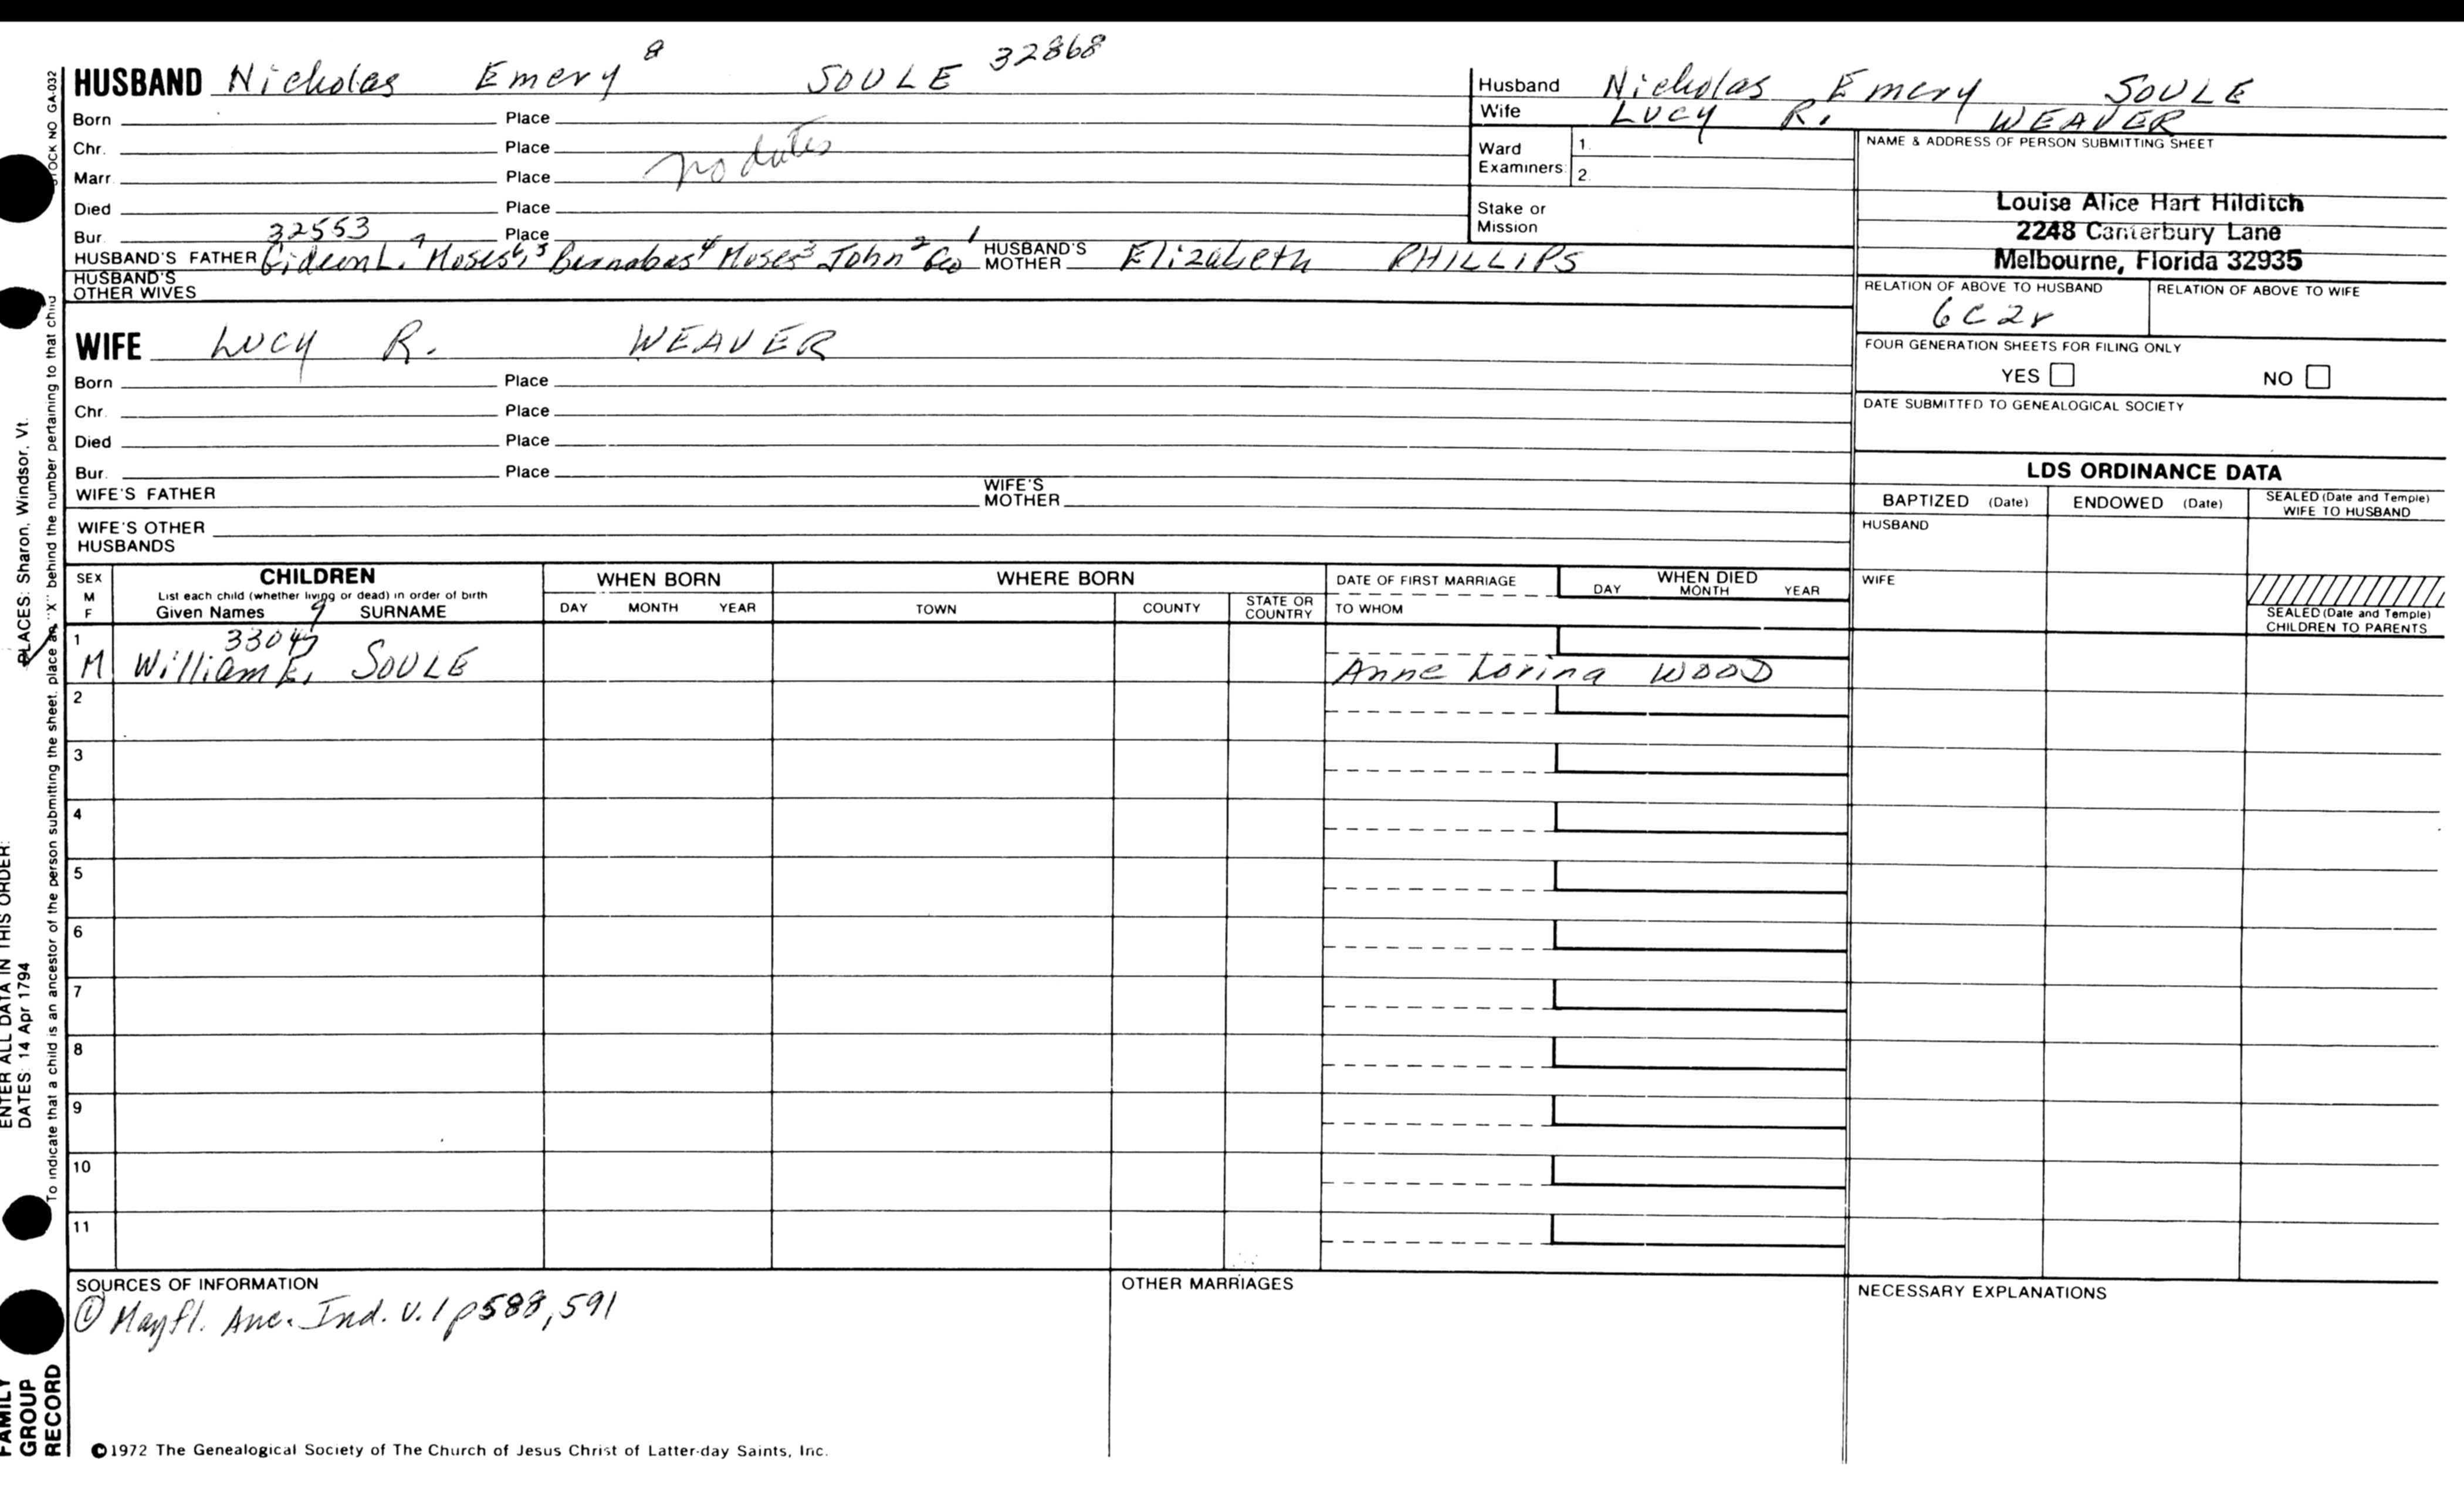 HUSBAND Nicholas Emery 8 SOULE 32868
Born Place
Chr. Place no dates
Marr. Place
Died Place
Bur. 32553 Place
HUSBAND'S FATHER Gideon L.7 Moses6,5 Barnabas4 Moses3 John2 Geo1 HUSBAND'S MOTHER Elizabeth PHILLIPS
HUSBAND'S OTHER WIVES
WIFE LUCY R. WEAVER
Born Place
Chr. Place
Died Place
Bur. Place
WIFE'S FATHER WIFE'S MOTHER
WIFE'S OTHER HUSBANDS
Husband Nicholas Emery SOULE
Wife LUCY R. WEAVER
Ward Examiners: 1. 2.
Stake or Mission
NAME & ADDRESS OF PERSON SUBMITTING SHEET
Louise Alice Hart Hilditch
2248 Canterbury Lane
Melbourne, Florida 32935
RELATION OF ABOVE TO HUSBAND RELATION OF ABOVE TO WIFE
6C2r
FOUR GENERATION SHEETS FOR FILING ONLY
YES NO
DATE SUBMITTED TO GENEALOGICAL SOCIETY
LDS ORDINANCE DATA
BAPTIZED (Date) ENDOWED (Date) SEALED (Date and Temple) WIFE TO HUSBAND
HUSBAND
WIFE
SEALED (Date and Temple) CHILDREN TO PARENTS
SEX M F CHILDREN WHEN BORN WHERE BORN DATE OF FIRST MARRIAGE WHEN DIED
List each child (whether living or dead) in order of birth
Given Names 9 SURNAME DAY MONTH YEAR TOWN COUNTY STATE OR COUNTRY TO WHOM DAY MONTH YEAR
1 33047
M William E. SOULE Anne Loring WOOD
2
3
4
5
6
7
8
9
10
11
SOURCES OF INFORMATION OTHER MARRIAGES NECESSARY EXPLANATIONS
① Mayfl. Anc. Ind. v. 1 p588, 591
©1972 The Genealogical Society of The Church of Jesus Christ of Latter-day Saints, Inc.
STOCK NO GA-032
To indicate that a child is an ancestor of the person submitting the sheet, place an "X" behind the number pertaining to that child
PLACES: Sharon, Windsor, Vt.
ENTER ALL DATA IN THIS ORDER:
DATES: 14 Apr 1794
FAMILY
GROUP
RECORD